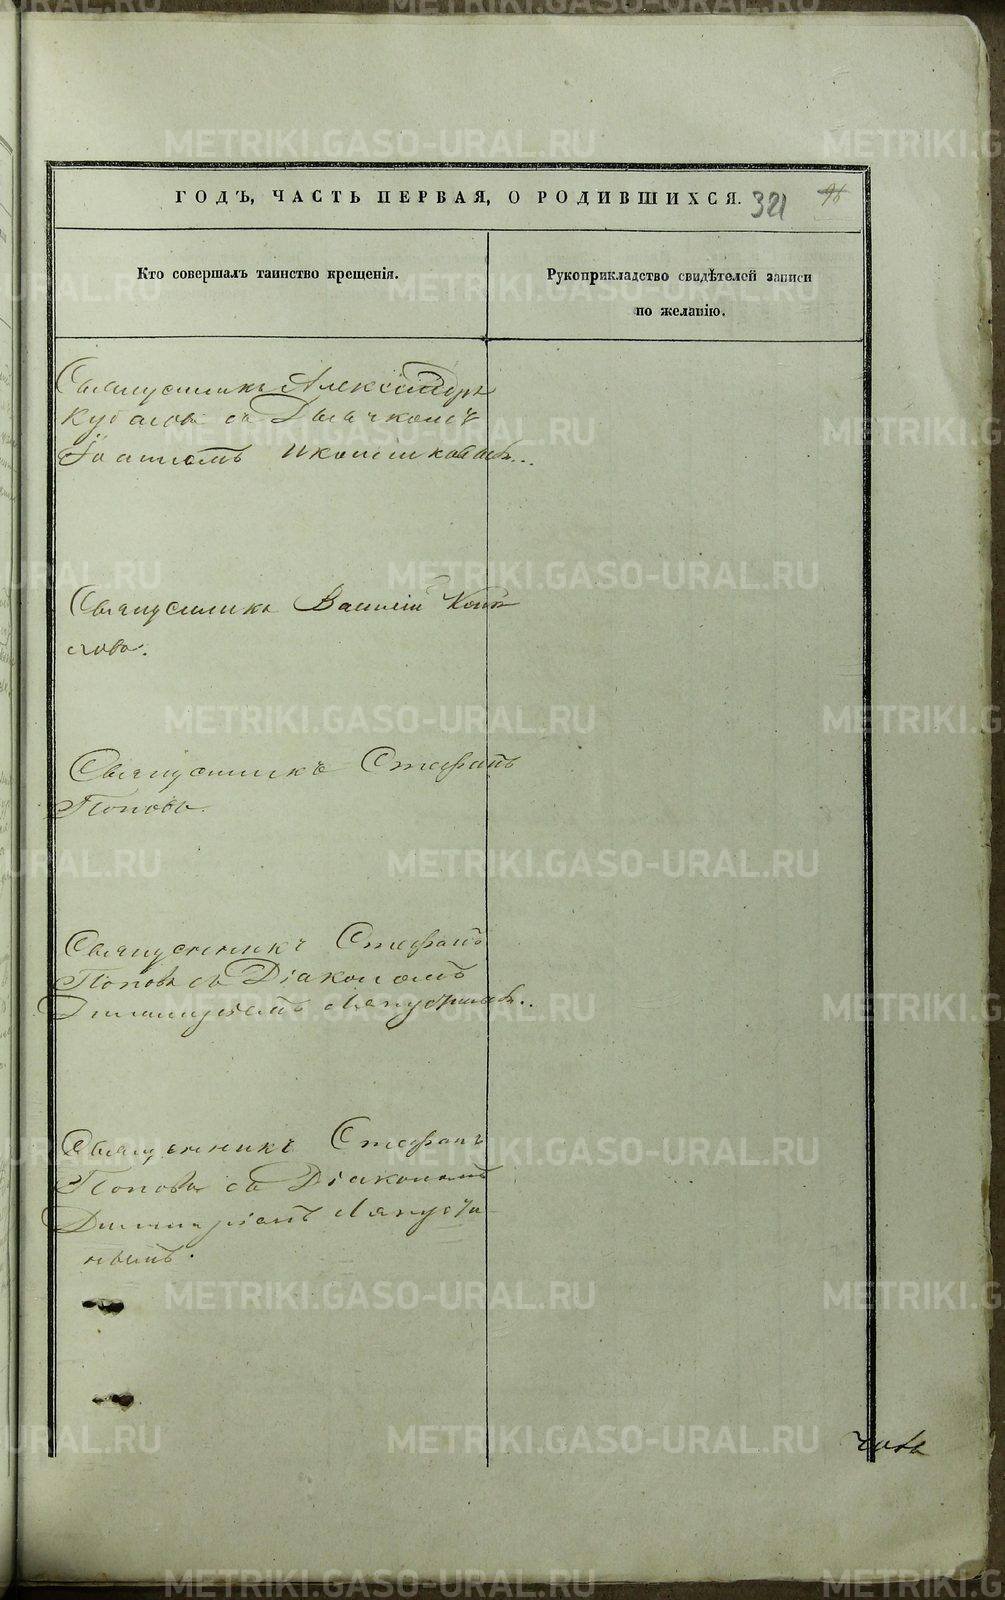 ГОДЪ, ЧАСТЬ ПЕРВАЯ, О РОДИВШИХСЯ. 321 96
Кто совершалъ таинство крещенія.
Рукоприкладство свидѣтелей записи
по желанію.
Священникъ Александръ
съ Дьячкомъ
Іоанномъ
Священникъ Василій
Священникъ Стефанъ
Поповъ.
Священникъ Стефанъ
Поповъ съ Діакономъ
Димитріемъ Ляпустинымъ..
Священникъ Стефанъ
Поповъ съ Діакономъ
Димитріемъ Ляпусти-
нымъ.
METRIKI.GASO-URAL.RU